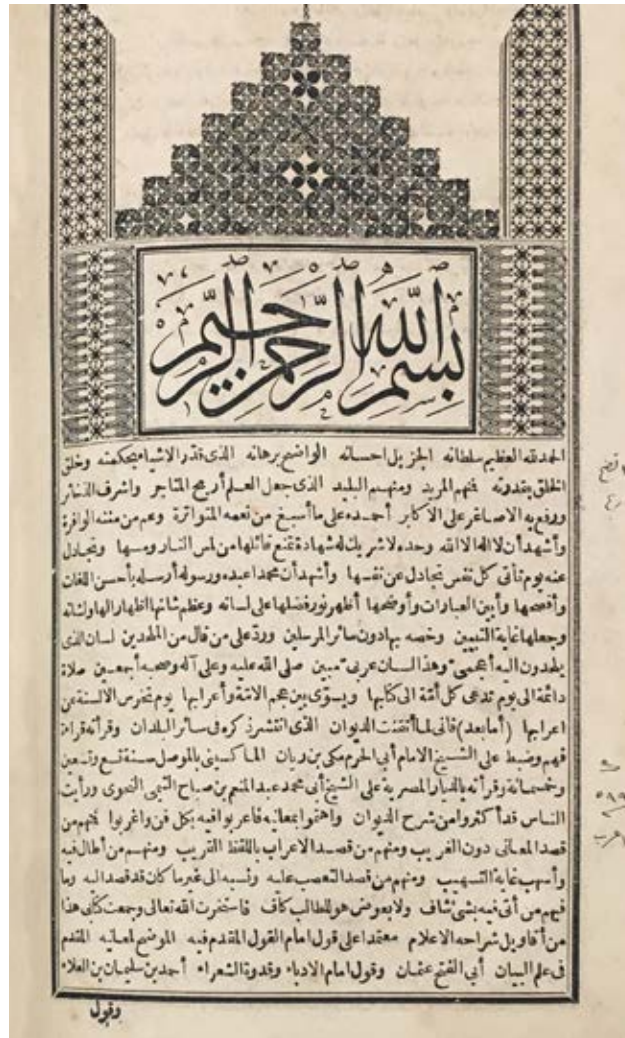 بسم الله الرحمن الرحيم
الحمد لله العظيم سلطانه الجزيل احسانه الواضح برهانه الذى قدر الاشياء بحكمته وخلق
الخلق بقدرته فمنهم المريد ومنهم البليد الذى جعل العلم أربح المتاجر واشرف الذخائر
ورفع به الاصاغر على الاكابر أحمده على ما أسبغ من نعمه المتواترة وعم من مننه الوافرة
وأشهد أن لا اله الا الله وحده لا شريك له شهادة تمنع قائلها من لمس النار ومسها وتجادل
عنه يوم تأتى كل نفس تجادل عن نفسها وأشهد أن محمدا عبده ورسوله أرسله بأحسن اللغات
وأفصحها وأبين العبارات وأوضحها أظهر نور فضلها على لسانه وعظم شانها اظهارا لها ولشانه
وجعلها غاية التبيين وخصه بها دون سائر المرسلين وردّ على من قال من الملحدين لسان الذى
يلحدون اليه أعجمىّ وهذا لسان عربىّ مبين صلى الله عليه وعلى آله وصحبه أجمعين صلاة
دائمة الى يوم تدعى كل أمّة الى كتابها ويسوّى بين عجم الامّة وأعرابها يوم تخرس الالسنة عن
اعرابها (أما بعد) فانى لما أتقنت الديوان الذى انتشر ذكره فى سائر البلدان وقرأته قراءة
فهم وضبط على الشيخ الامام أبى الحرم مكى بن ريان الماكسينى بالموصل سنة تسع وتسعين
وخمسمائة وقرأته بالديار المصرية على الشيخ أبى محمد عبد المنعم بن صباح التيمى النحوى ورأيت
الناس قد أكثروا من شرح الديوان واهتموا بمعانيه فاعربوا فيه بكل فن واغربوا فمنهم من
قصد المعانى دون الغريب ومنهم من قصد الاعراب باللفظ القريب ومنهم من أطال فيه
وأسهب غاية التسهيب ومنهم من قصد التعصب عليه ونسبه الى غير ما كان قد قصد اليه وما
فيهم من أتى فيه بشئ شاف ولا بعوض هو للطالب كاف فاستخرت الله تعالى وجمعت كتابى هذا
من أقاويل شراحه الاعلام معتمدا على قول امام القول المقدم فيه الموضح لمعانيه المقدم
فى علم البيان أبى الفتح عثمان وقول امام الادباء وقدوة الشعراء أحمد بن سليمان بن العلاء
وقول